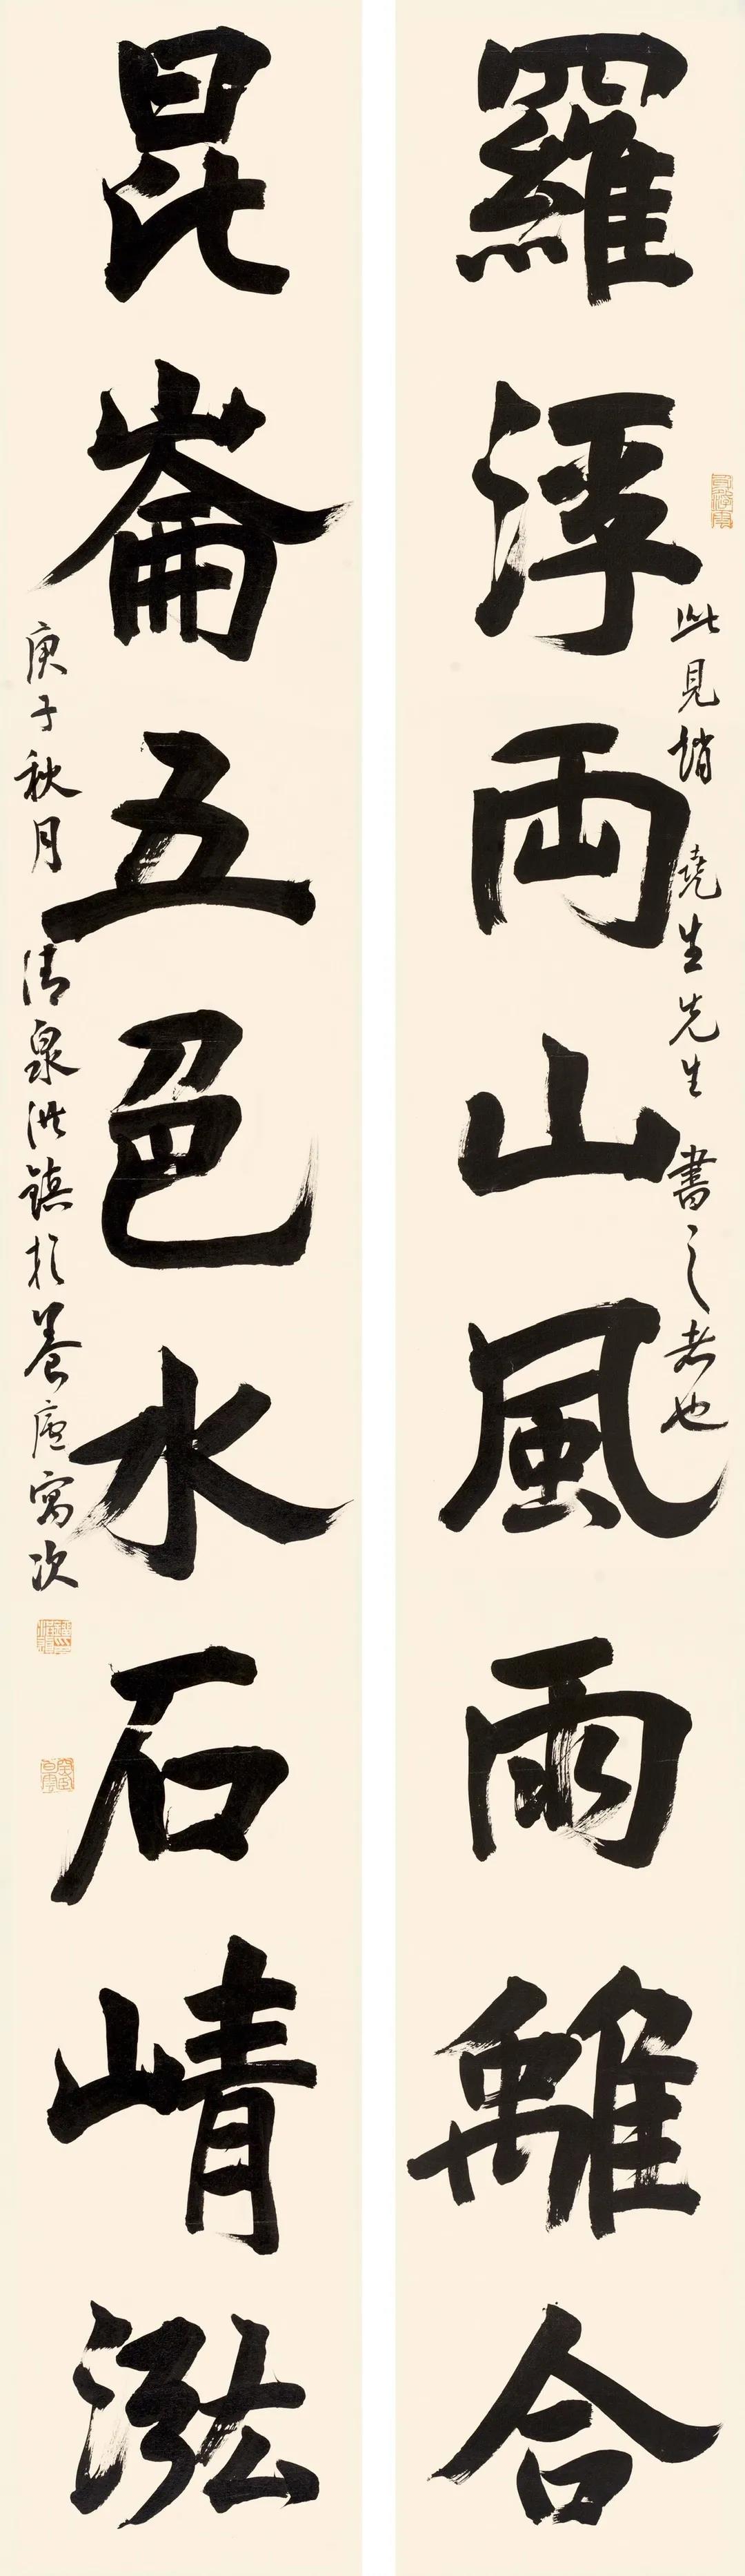 羅浮両山風雨離合
此見趙堯生先生書之者也
昆崙五色水石崝泓
庚子秋月清泉洪鎮於養廬寓次